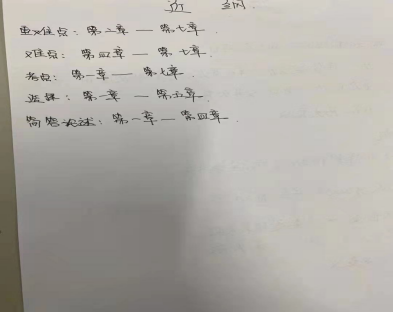 近纲
重难点：第二章 — 第七章.
难点：第四章 — 第七章.
考点：第一章 — 第七章.
选择：第一章 — 第五章.
简答论述：第一章 — 第四章.